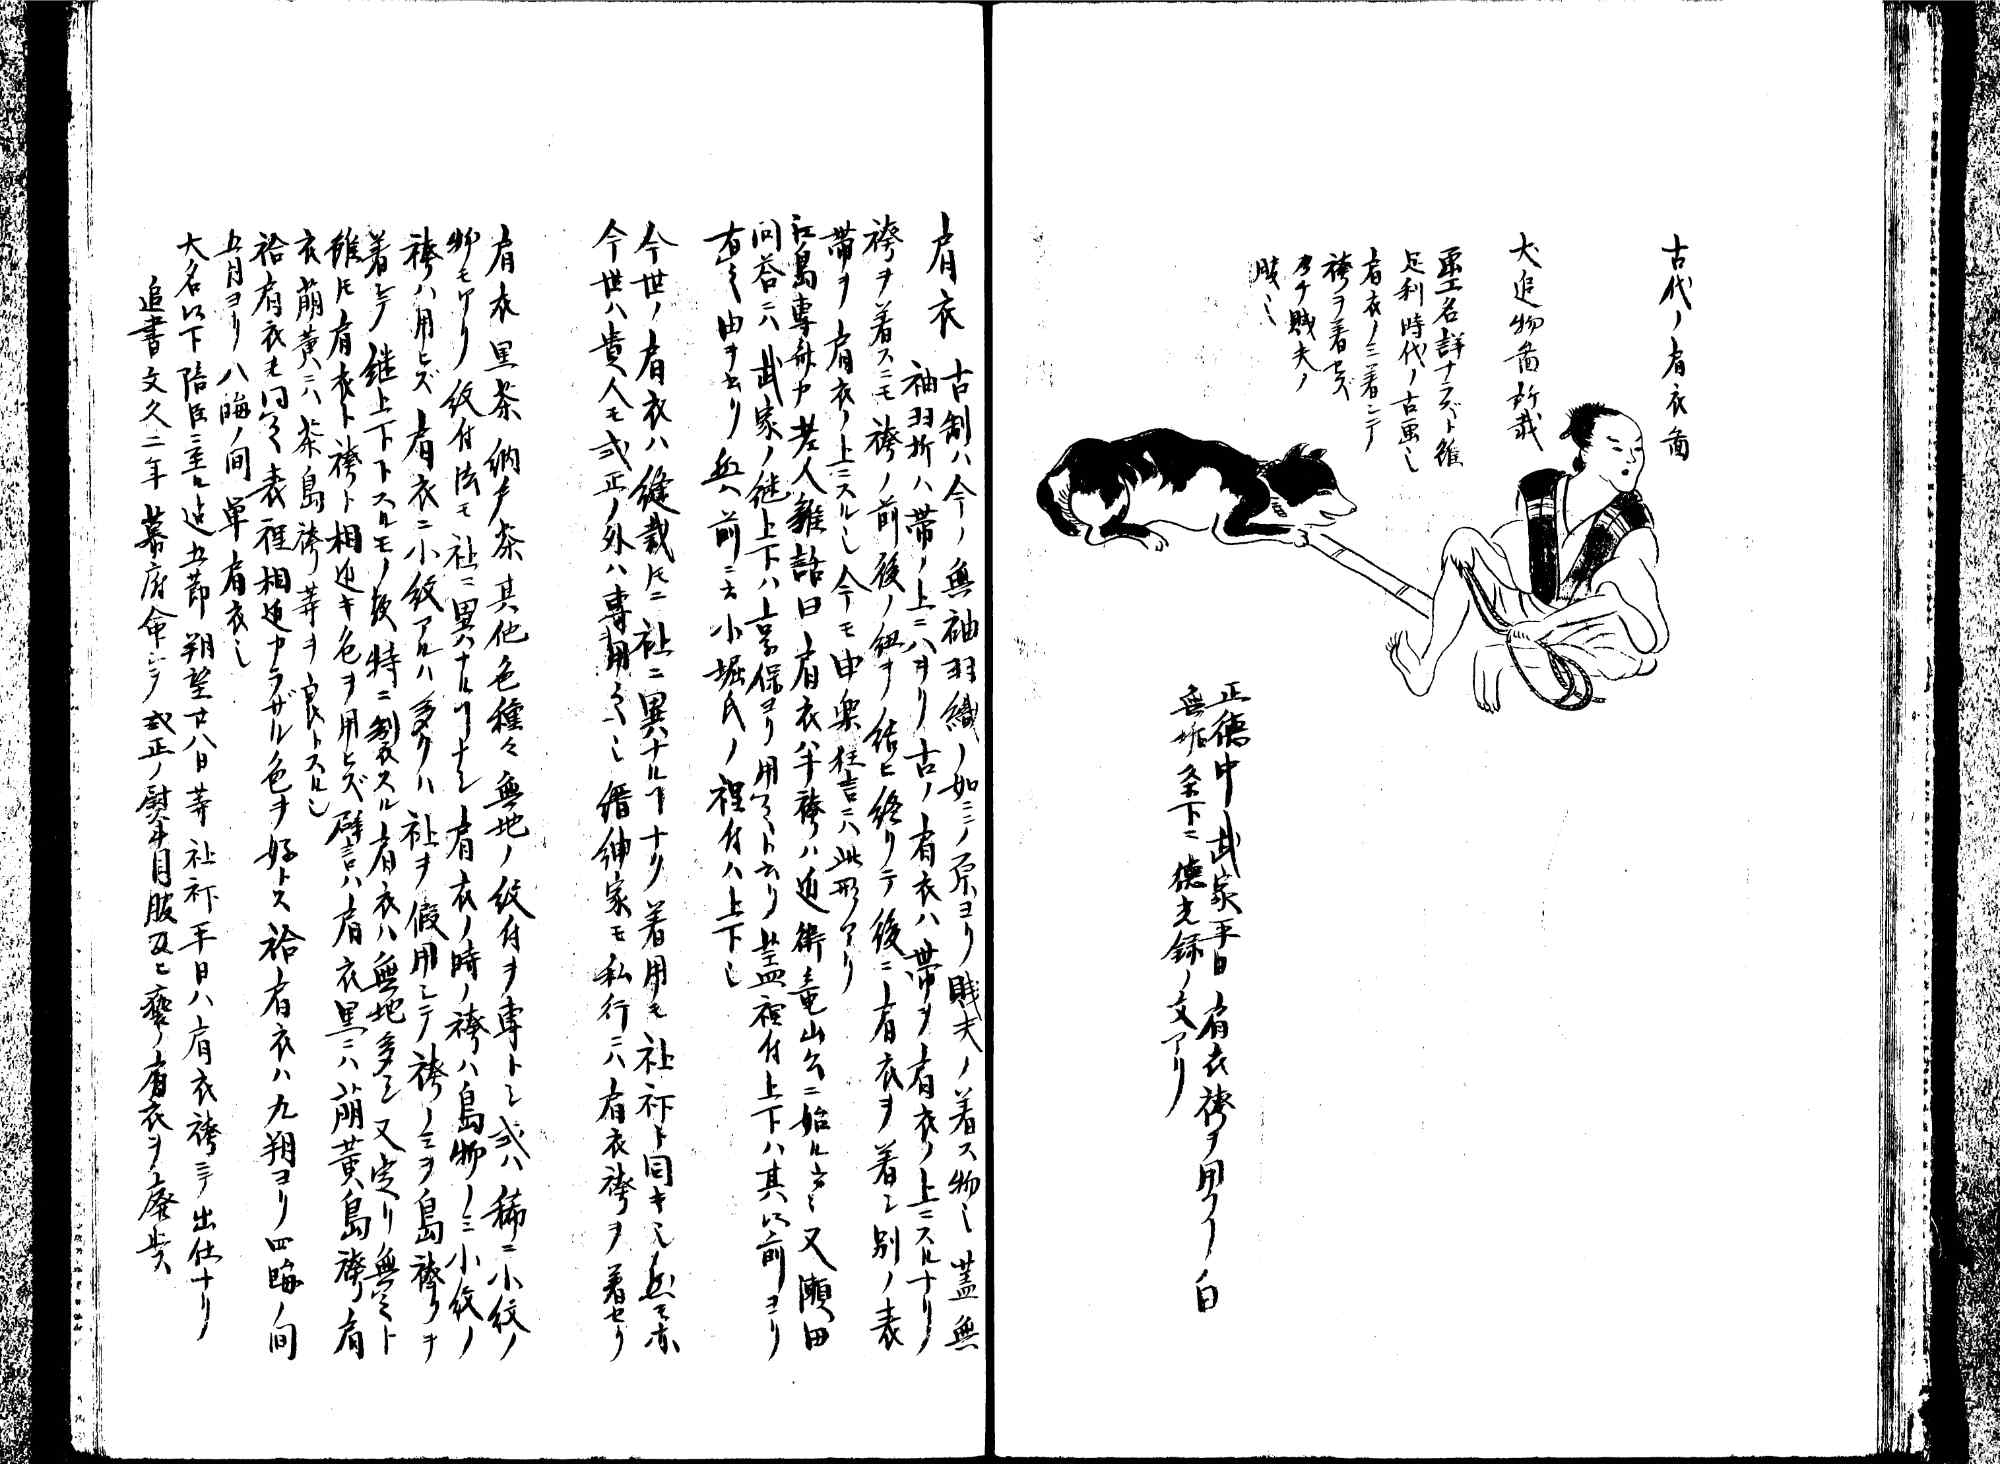 古代ノ肩衣圖
犬追物圖所載
画工名詳ナラズト雖
足利時代ノ古画也
肩衣ノミ着シテ
袴ヲ着セズ
乃チ賎夫ノ
服也
正徳中武家平日肩衣袴ヲ用フノ白
無垢ノ条下ニ徳光録ノ文アリ
肩衣 古制ハ今ノ無袖羽織ノ如シ原ヨリ賎夫ノ着ス物也蓋無
袖羽折ハ帯ノ上ニハヲリ古ノ肩衣ハ帯ヲ肩衣ノ上ニスルナリ
袴ヲ着スニモ袴ノ前後ノ紐ヲ結ヒ終リテ後ニ肩衣ヲ着シ別ノ表
帯ヲ肩衣ノ上ニスル也今モ申楽狂言ニハ此形アリ
江島専舩中老人雑話曰肩衣半袴ハ近衛竜山公ニ始ル云々又瀬田
問答ニハ武家ノ継上下ハ享保ヨリ用フト云リ蓋裡付上下ハ其以前ヨリ
有之由ヲ云リ無ハ前ニ云小堀氏ノ裡付ハ上下也
今世ノ肩衣ハ縫裁トモニ𧘕ニ異ナルヿナク着用モ𧘕𧘔ト同キ也然モ亦
今世ハ貴人モ式正ノ外ハ専用之也縉紳家モ私行ニハ肩衣袴ヲ着セリ
肩衣黒茶納戸茶其他色種々無地ノ紋付ヲ専トシ或ハ稀ニ小紋ノ
物モアリ紋付法モ𧘕ニ異ナルヿナシ肩衣ノ時ノ袴ハ島物ノミ小紋ノ
袴ハ用ヒズ肩衣ニ小紋アルハ多クハ𧘕ヲ假用シテ袴ノミヲ島袴ヲ
着シテ継上下トスルモノ故特ニ製スル肩衣ハ無地多シ又定リ無シト
雖モ肩衣ト袴ト相近キ色ヲ用ヒズ譬言ハ肩衣黒ニハ萠黄島袴肩
衣萠黄ニハ茶島袴等ヲ良トスル也
袷肩衣モ同之表裡相近カラザル色ヲ好トス袷肩衣ハ九朔ヨリ四晦ノ間
五月ヨリ八晦ノ間單肩衣也
大名以下陪臣ニ至ル迠五節朔望廿八日等𧘕𧘔平日ハ肩衣袴ニテ出仕ナリ
追書文久二年幕府命シテ式正ノ熨斗目服及ヒ褻ノ肩衣ヲ廃止ス